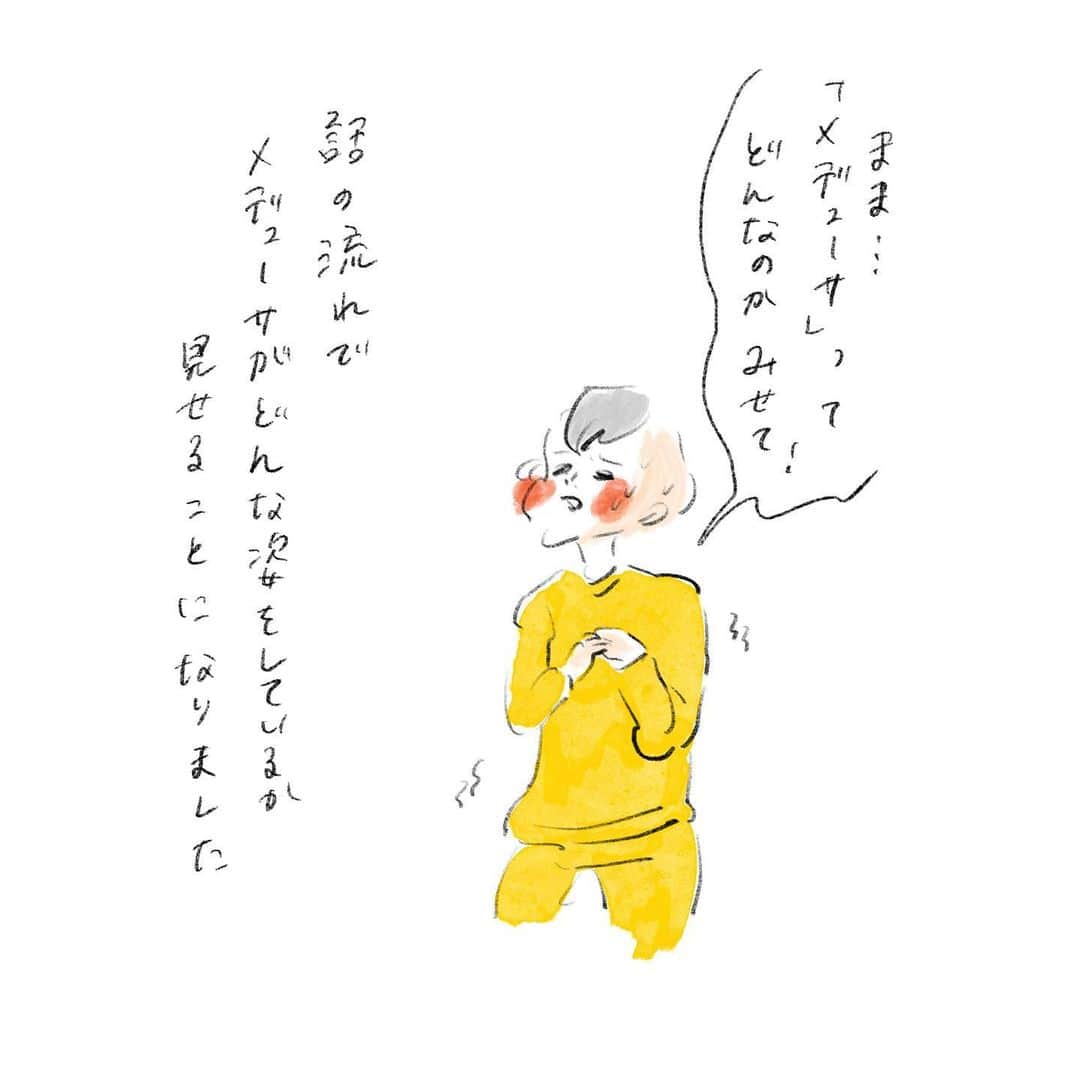 まま…
「メデューサ」って
どんなのか みせて!
話の流れで
メデューサがどんな姿をしているか
見せることになりました